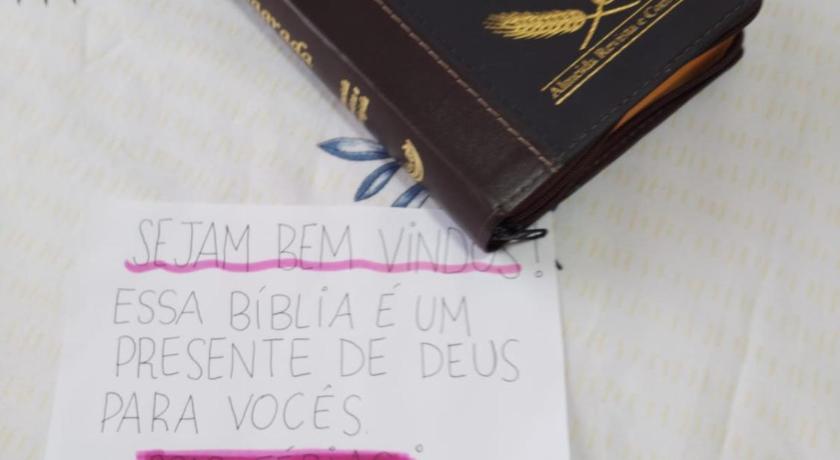 Sagrada
Almeida Revista e Cor
SEJAM BEM VINDOS!
ESSA BÍBLIA É UM
PRESENTE DE DEUS
PARA VOCÊS.